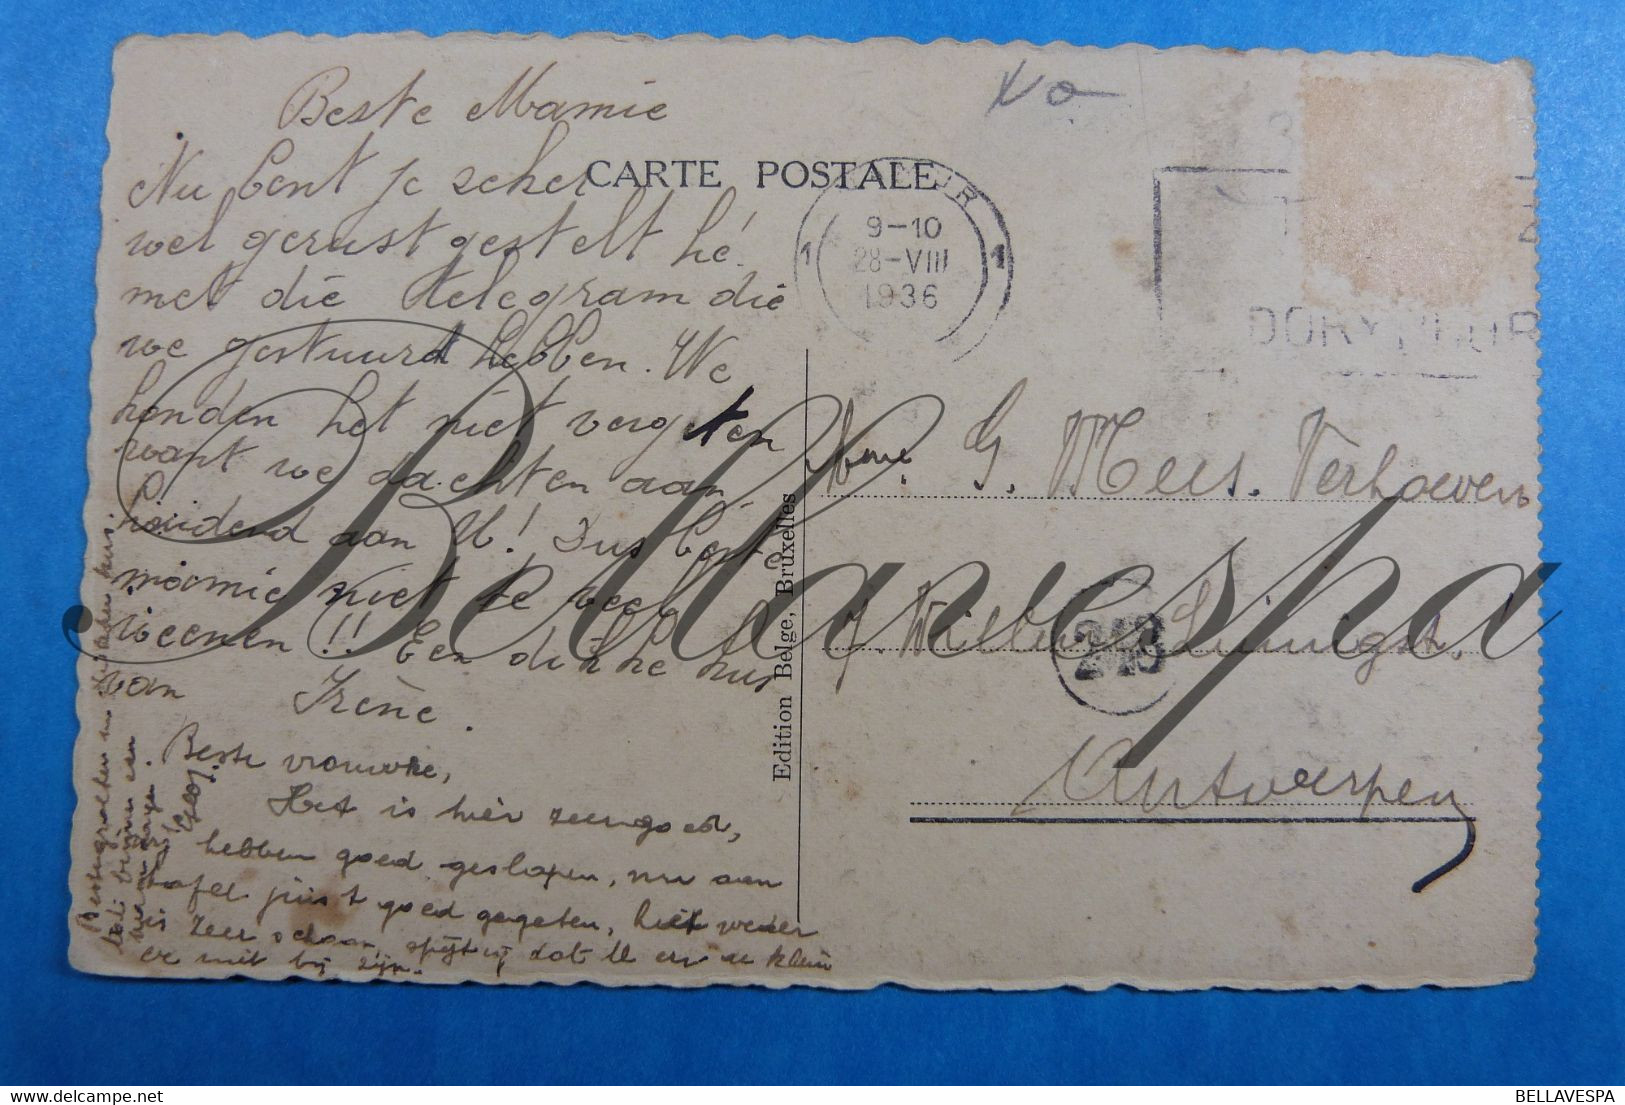 Beste Mamie
Nu bent je zeker
wel gerust gestelt hé.
met die telegram die
we gestuurd hebben. We
konden het niet vergeten
want we dachten aan
houdend aan U! Dus beste
mamie niet te veel
weenen!! Een dikke kus
van Irène.
Beste vrouwke,
Het is hier zeer goed,
hebben goed geslapen, nu aan
tafel juist goed gegeten, het weder
is zeer schoon, spijt dat U en de klein
er niet bij zijn.
Beste groeten en dikken kus.
CARTE POSTALE
9-10
28-VIII
1936
1 1
DORYPHOR
Mme. G. Mees. Verhoeven
Antwerpen
Edition Belge, Bruxelles
Bellavespa
BELLAVESPA